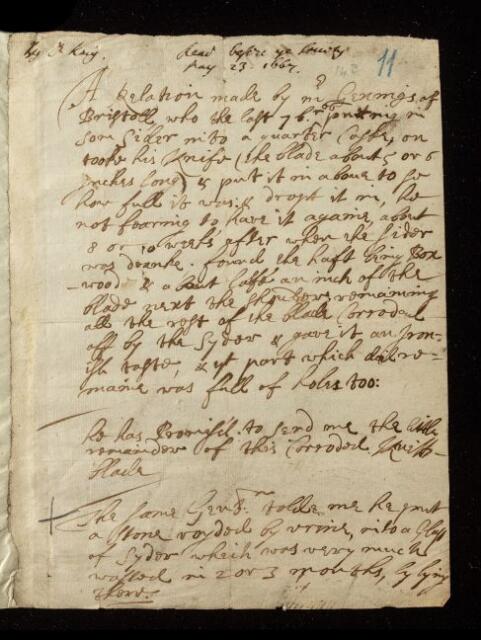 read before ye Society
may 23: 1667.
11
A Relation made by mr Gennings of
Bristoll, who the last 7br putting in
som Sider into a quarter Caske, on
tooke his Knife (the blade about 5 or 6
inches long) & put it in aboue to se
how full it was & dropt it in, he
not fearing to have it againe, about
8 or 10 weeks after when the Sider
was dranke. found the haft being Box
wood & about halfe an inch of the
blade next the shoulders remaining
all the rest of the blade Corroded
off by the Syder & gave it an Iron-
ish taste, & yt part which did re-
maine was full of holes too:
he has Promis'd to send me the little
remainder of this Corroded Knife
blade
The same Gent: tolde me he put
a stone voyded by urine, into a Glass
of Syder which was very much
wasted in 2 or 3 months, by lying
there.